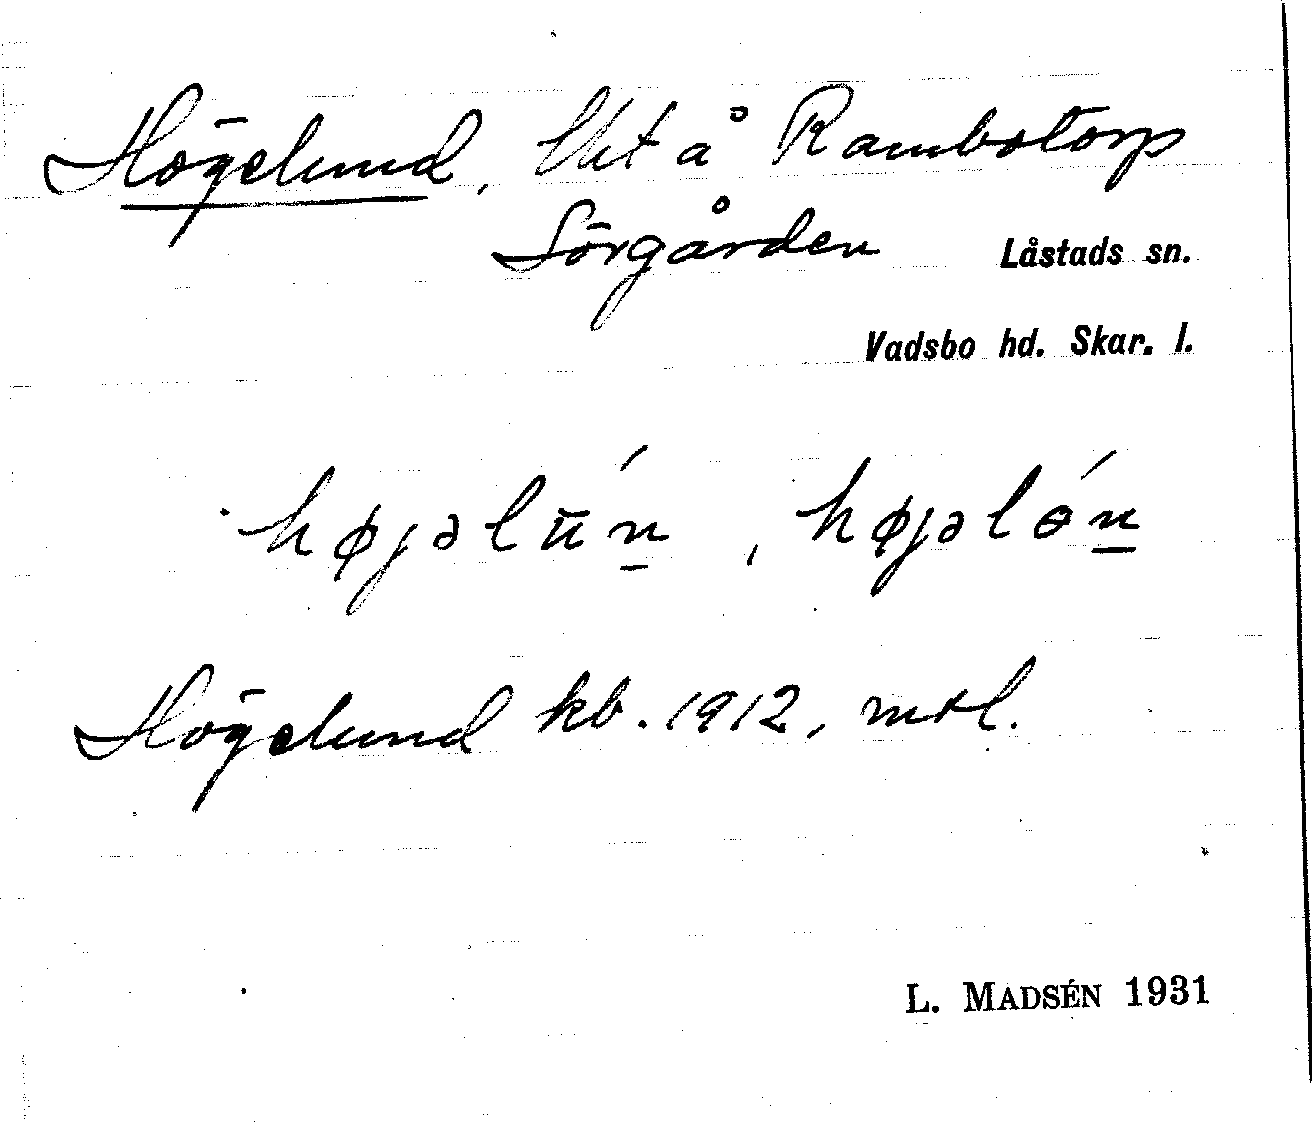 Högelund, lht å Rambotorp
Sörgården Låstads sn.
Vadsbo hd. Skar. l.
højəlūń, højəlóṉ
Högelund kb. 1912, mtl.
L. MADSÉN 1931